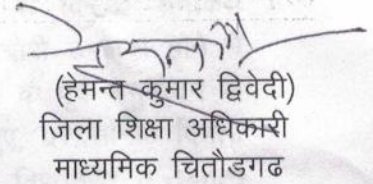 (हेमन्त कुमार द्विवेदी)
जिला शिक्षा अधिकारी
माध्यमिक चितौडगढ